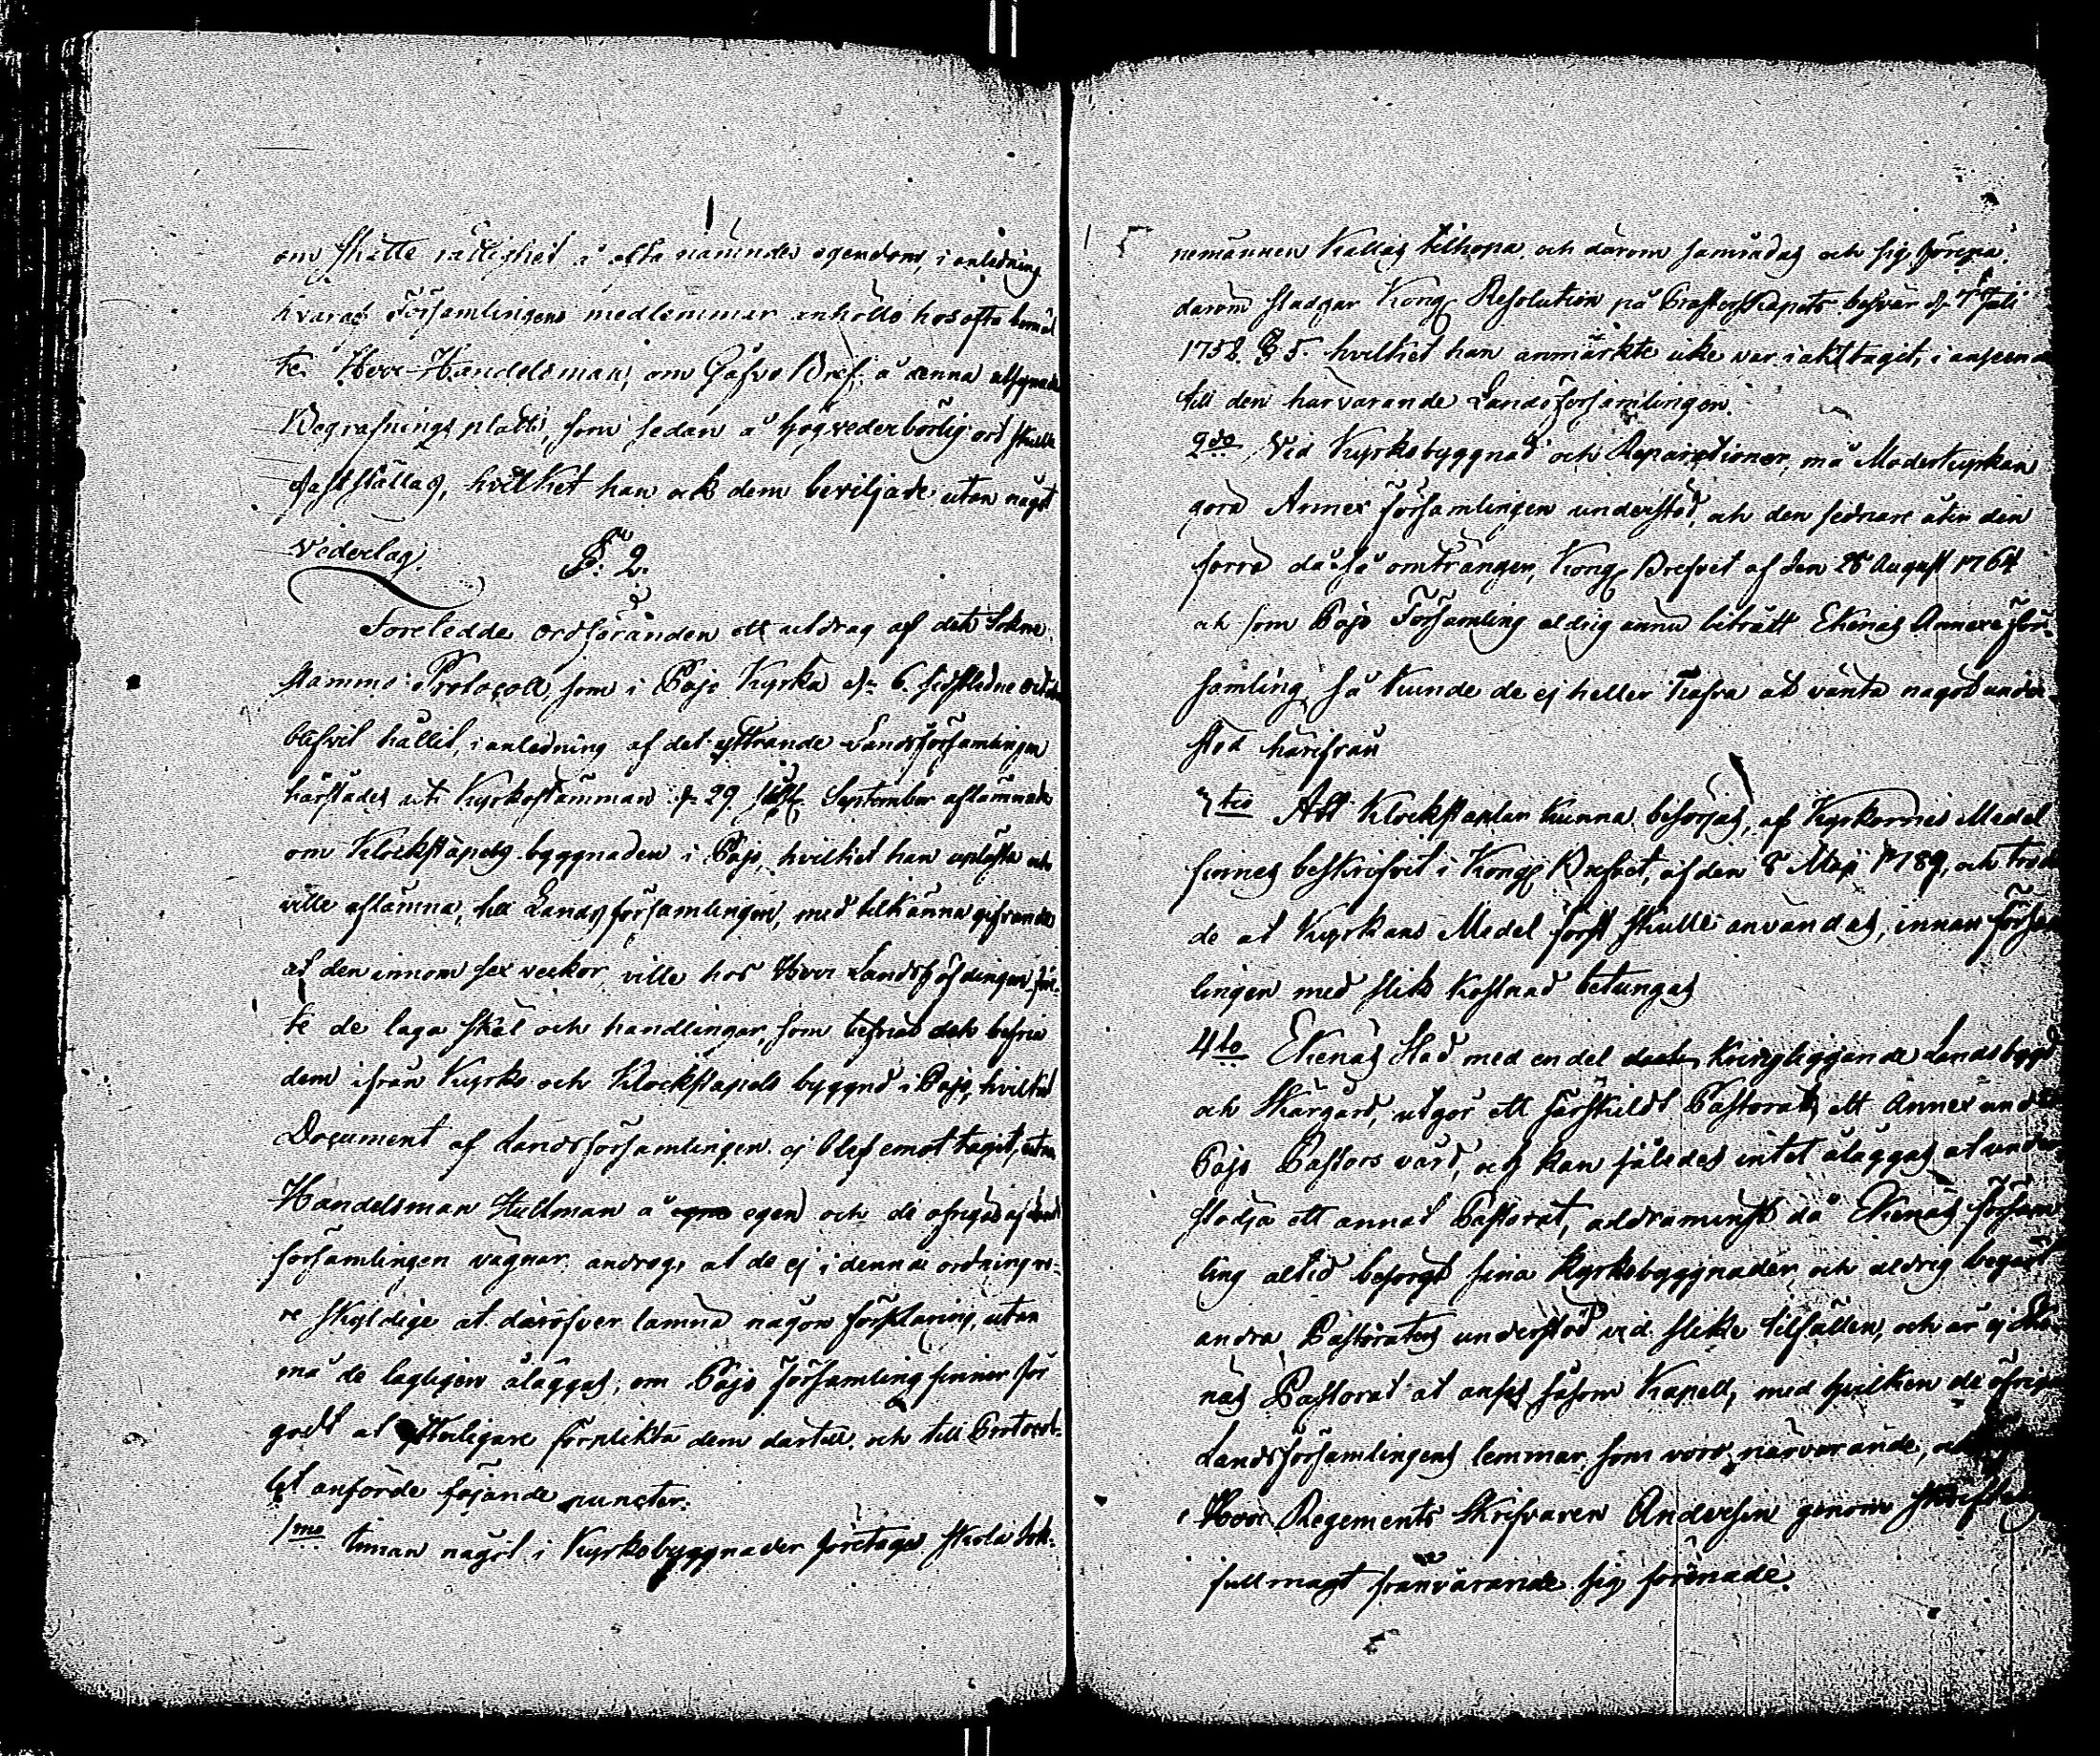 om skatte rättighet å ofta nämnde egendom, i anledning
hvaraf Församlingens medlemmar anhöllo hos ofta bemäl
te Herr Handelsman, om Gåfvo Bref å denna
Begrafnings platts, som sedan å högvederbörlig ort skulle
faststållas, hvilket han ock dem beviljade utan något
Vederlag. §. 2.
Foreledde ordföranden ett utdrag af det Sokne
stämmo Protocoll, som i Pojo Kyrka d. 6. sidstledne
blifvit hållit, i anledning af det yttrande Landsförsamlingen
härstädes uti Kyrkostämman d. 29. September aflämnade
om Klockstapels byggnaden i Pojo, hvilket han upläste och
ville aflämna, till Landsförsamlingen, med tilkänna gifvande
at den innom sex veckor ville hos Herr Landshöfdingen
te de laga skäl och handlingar, som befria
dem ifrån Kyrko och Klockstapels byggnd i Pojo, hvilket
Document af Landsförsamlingen ej blef emot tagit, utan
Handelsman Hultman å egen och de öfriga af
församlingen vägnar, androg, at de ej i denna ordning vo-
re skyldige at däröfver lämna någon förklaring, utan
må de lagligen åläggas, om Pojo Församling finner för
godt at ytterligare förplikta dem därtill, och till Protocol-
let anförde föjande puncter.
1mo Innan något i Kyrkobyggnader företages skola Sok-
nemännen Kallas tilhopa, och därom samrådas och sig förena,
därom stadgar Kong. Resolution på Prästerskapets besvär d. Juli
1752. § 5. hvilket han anmärkte icke var i akt tagit, i anseende
till den härvarande Landsförsamlingen.
2do Vid Kyrkobyggnad och Reparationer, må Moderkyrkan
göra Annex Församlingen understöd, och den sednare åter den
förra då så omtränges, Kong. Brefvet af den 28 August 1764
och som Pojo Församling aldrig ännu biträtt Ekenäs Annexe För-
samling så kunde de ej heller hafva at vänta något under-
stöd härifrån
3tio Att Klockstaplar kunna besörjas, af Kyrkornes Medel
finnes beskrifvit i Kong. Brefvet, af den 8 Maji 1789, och trod
de at Kyrkans Medel först skulle användas, innan Försam
lingen med slik kostnad betungas
4to Ekenäs Stad med en del kringliggande Landsbygd
och Skärgård, utgör ett särskildt Pastorat, ett Annex under
Pojo Pastors vård, och kan således intet åläggas at under
stödja ett annat Pastorat, aldraminst då Ekenäs Försam
ling altid besörgt sina Kyrkobyggnader, och aldrig begärt
andra Pastoraters understöd vid slike tilfällen, och är ej Eke
näs Pastorat at anses såsom Kapell, med hvilken de öfrige
Landsförsamlingens lemmar som voro närvarande, och
Herr Regements Skrifvaren Andersin genom
fullmagt frånvarande sig förenade.